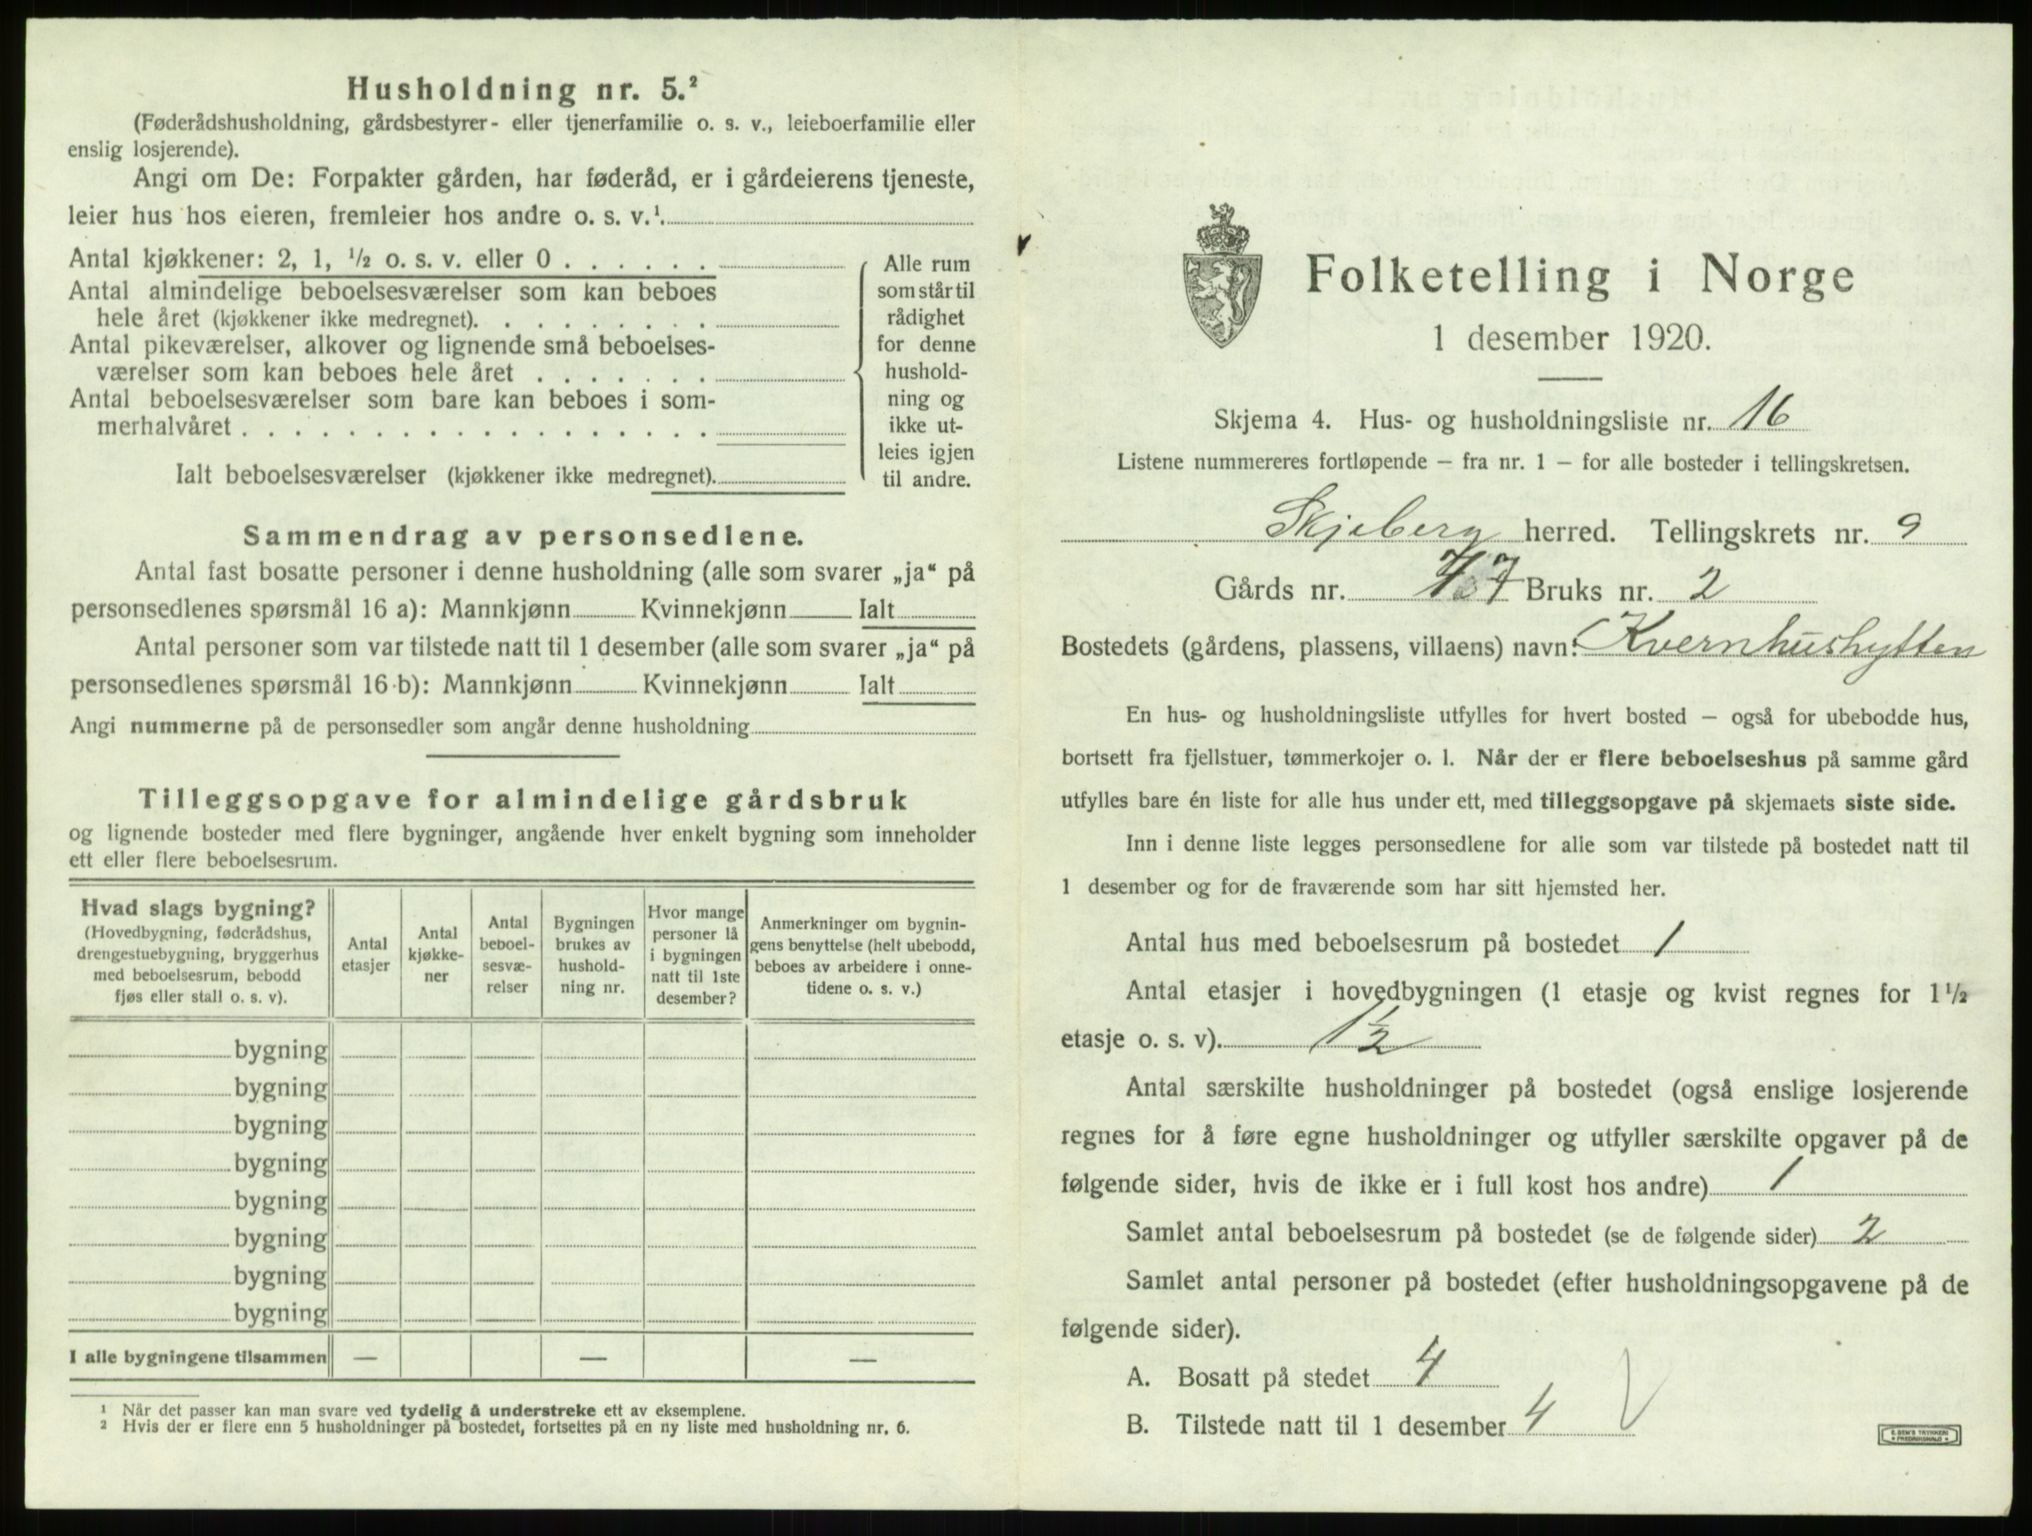 Husholdning nr. 5.²
(Føderådshusholdning, gårdsbestyrer- eller tjenerfamilie o. s. v., leieboerfamilie eller
enslig losjerende).
Angi om De: Forpakter gården, har føderåd, er i gårdeierens tjeneste,
leier hus hos eieren, fremleier hos andre o. s. v.¹
Antal kjøkkener: 2, 1, ½ o. s. v. eller 0
Antal almindelige beboelsesværelser som kan beboes
hele året (kjøkkener ikke medregnet).
Antal pikeværelser, alkover og lignende små beboelses-
værelser som kan beboes hele året
Antal beboelsesværelser som bare kan beboes i som-
merhalvåret
Ialt beboelsesværelser (kjøkkener ikke medregnet).
Alle rum
som står til
rådighet
for denne
hushold-
ning og
ikke ut-
leies igjen
til andre.
Sammendrag av personsedlene.
Antal fast bosatte personer i denne husholdning (alle som svarer „ja“ på
personsedlenes spørsmål 16 a): Mannkjønn Kvinnekjønn Ialt
Antal personer som var tilstede natt til 1 desember (alle som svarer „ja“ på
personsedlenes spørsmål 16 b): Mannkjønn Kvinnekjønn Ialt
Angi nummerne på de personsedler som angår denne husholdning
Tilleggsopgave for almindelige gårdsbruk
og lignende bosteder med flere bygninger, angående hver enkelt bygning som inneholder
ett eller flere beboelsesrum.
Hvad slags bygning?
(Hovedbygning, føderådshus,
drengestuebygning, bryggerhus
med beboelsesrum, bebodd
fjøs eller stall o. s. v).
Antal
etasjer
Antal
kjøkke-
ner
Antal
beboel-
sesvæ-
relser
Bygningen
brukes av
hushold-
ning nr.
Hvor mange
personer lå
i bygningen
natt til 1ste
desember?
Anmerkninger om bygnin-
gens benyttelse (helt ubebodd,
beboes av arbeidere i onne-
tidene o. s. v.)
bygning
bygning
bygning
bygning
bygning
bygning
bygning
bygning
I alle bygningene tilsammen — — —
¹ Når det passer kan man svare ved tydelig å understreke ett av eksemplene.
² Hvis der er flere enn 5 husholdninger på bostedet, fortsettes på en ny liste med husholdning nr. 6.
Folketelling i Norge
1 desember 1920.
Skjema 4. Hus- og husholdningsliste nr. 16
Listene nummereres fortløpende – fra nr. 1 – for alle bosteder i tellingskretsen.
Skjeberg herred. Tellingskrets nr. 9
Gårds nr. Bruks nr. 2
Bostedets (gårdens, plassens, villaens) navn: Kvernhushytten
En hus- og husholdningsliste utfylles for hvert bosted – også for ubebodde hus,
bortsett fra fjellstuer, tømmerkojer o. l. Når der er flere beboelseshus på samme gård
utfylles bare én liste for alle hus under ett, med tilleggsopgave på skjemaets siste side.
Inn i denne liste legges personsedlene for alle som var tilstede på bostedet natt til
1 desember og for de fraværende som har sitt hjemsted her.
Antal hus med beboelsesrum på bostedet 1
Antal etasjer i hovedbygningen (1 etasje og kvist regnes for 1½
etasje o. s. v). 1½
Antal særskilte husholdninger på bostedet (også enslige losjerende
regnes for å føre egne husholdninger og utfyller særskilte opgaver på de
følgende sider, hvis de ikke er i full kost hos andre) 1
Samlet antal beboelsesrum på bostedet (se de følgende sider) 2
Samlet antal personer på bostedet (efter husholdningsopgavene på de
følgende sider).
A. Bosatt på stedet 4
B. Tilstede natt til 1 desember 4
E. SEM'S TRYKKERI
FREDRIKSHALD